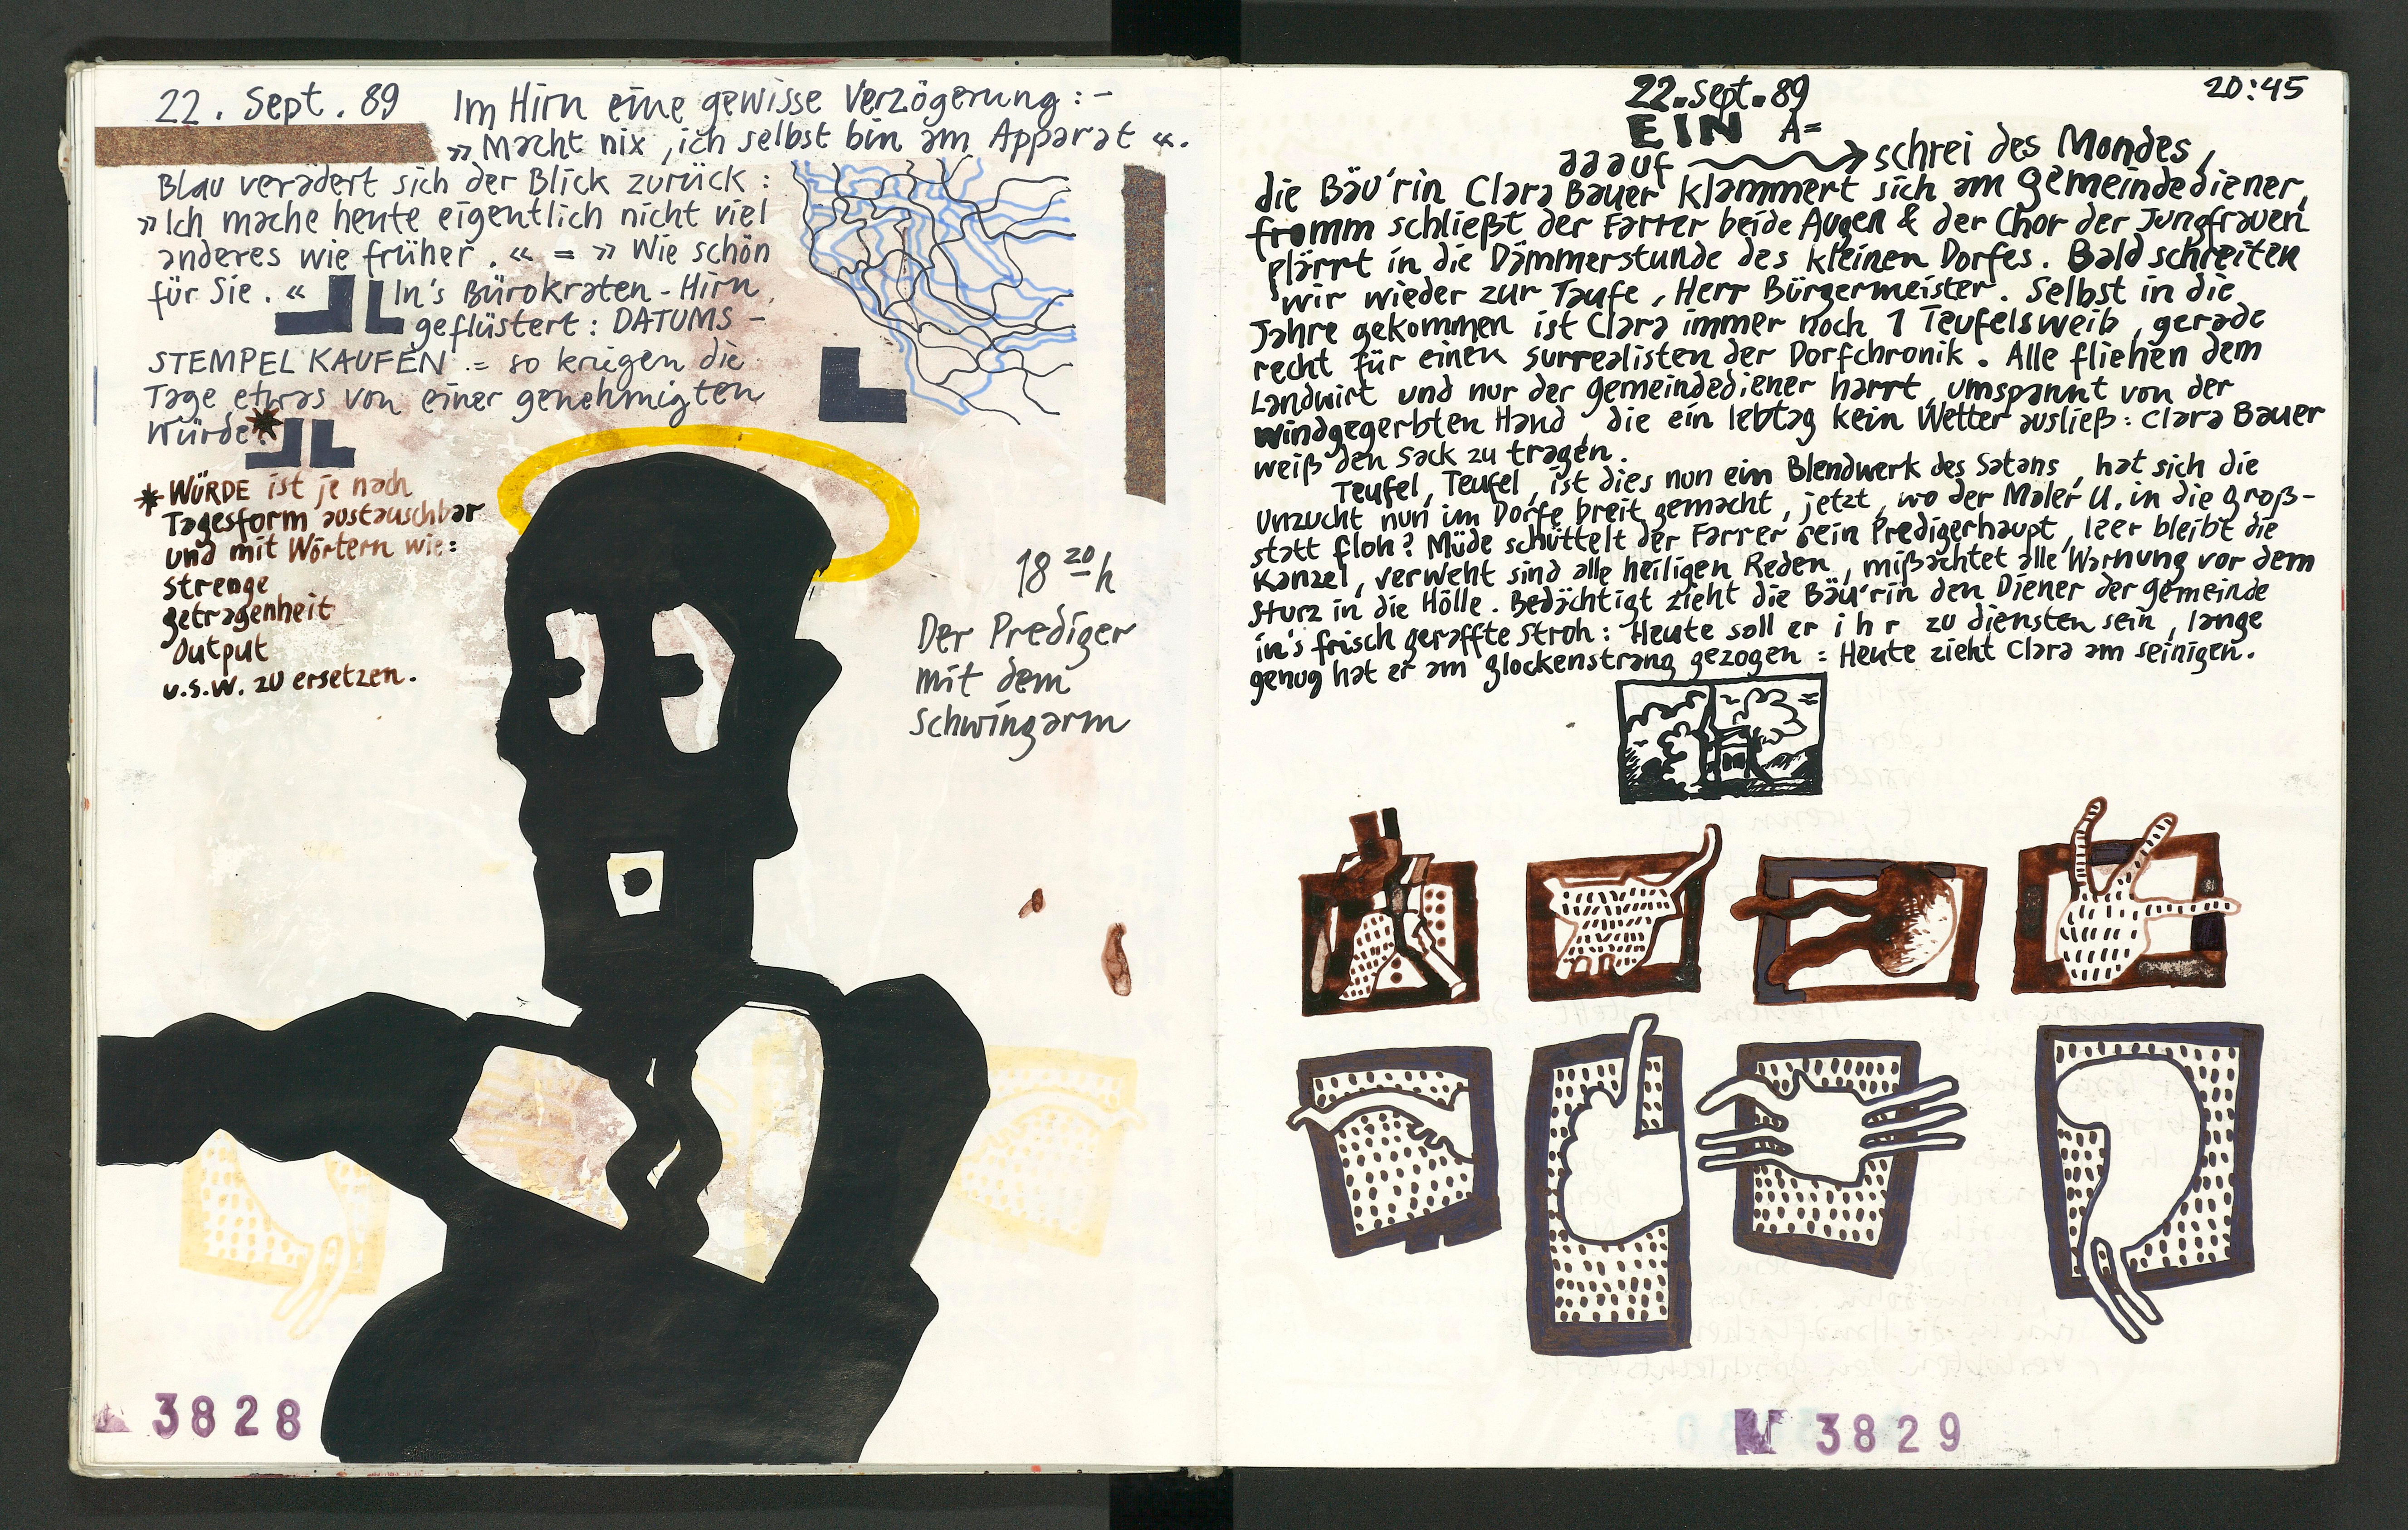 22. Sept. 89 Im Hirn eine gewisse Verzögerung:-
»Macht nix, ich selbst bin am Apparat«.
Blau verädert sich der Blick zurück:
»Ich mache heute eigentlich nicht viel
anderes wie früher.« = »Wie schön
für Sie.« In's Bürokraten-Hirn
geflüstert: DATUMS-
STEMPEL KAUFEN = so kriegen die
Tage etwas von einer genehmigten
Würde.*
* WÜRDE ist je nach
Tagesform austauschbar
und mit Wörtern wie:
strenge
getragenheit
Output
u.s.w. zu ersetzen.
18 20 h
Der Prediger
mit dem
schwingarm
3828
22. Sept. 89
20:45
EIN A=
aaauf schrei des Mondes,
die Bäu'rin Clara Bauer klammert sich am gemeindediener,
fromm schließt der Farrer beide Augen & der Chor der Jungfrauen
plärrt in die Dämmerstunde des kleinen Dorfes. Bald schreiten
wir wieder zur Taufe, Herr Bürgermeister. Selbst in die
Jahre gekommen ist Clara immer noch 1 Teufelsweib, gerade
recht für einen surrealisten der Dorfchronik. Alle fliehen dem
Landwirt und nur der gemeindediener harrt, umspannt von der
windgegerbten Hand, die ein lebtag kein Wetter ausließ: Clara Bauer
weiß den Sack zu tragen.
Teufel, Teufel, ist dies nun ein Blendwerk des Satans, hat sich die
Unzucht nun im Dorfe breit gemacht, jetzt, wo der Maler U. in die groß-
statt floh? Müde schüttelt der Farrer sein Predigerhaupt, leer bleibt die
Kanzel, verweht sind alle heiligen Reden, mißachtet alle Warnung vor dem
Sturz in die Hölle. Bedächtigt zieht die Bäu'rin den Diener der gemeinde
in's frisch geraffte Stroh: Heute soll er ihr zu diensten sein, lange
genug hat er am glockenstrang gezogen = Heute zieht Clara am seinigen.
N 3829